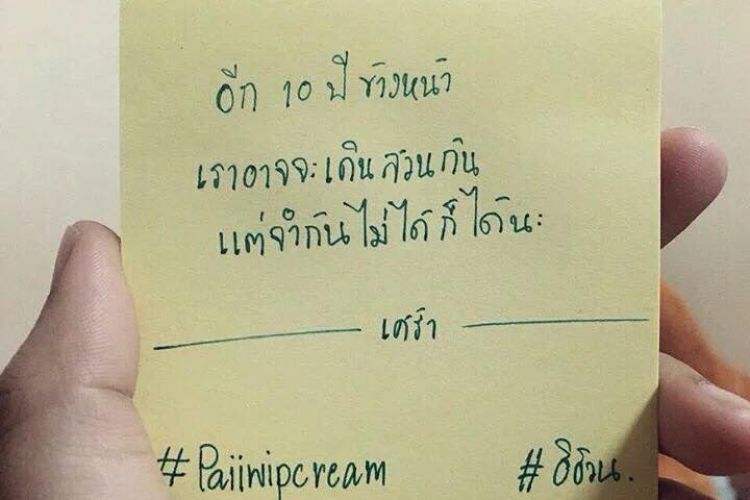 อีก 10 ปี ข้างหน้า
เราอาจจะเดินสวนกัน
แต่จำกันไม่ได้ก็ได้นะ
เศร้า
#Paiiwipcream #ฮิฮวน.